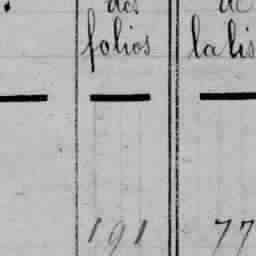 des de
folios la lis
191 77